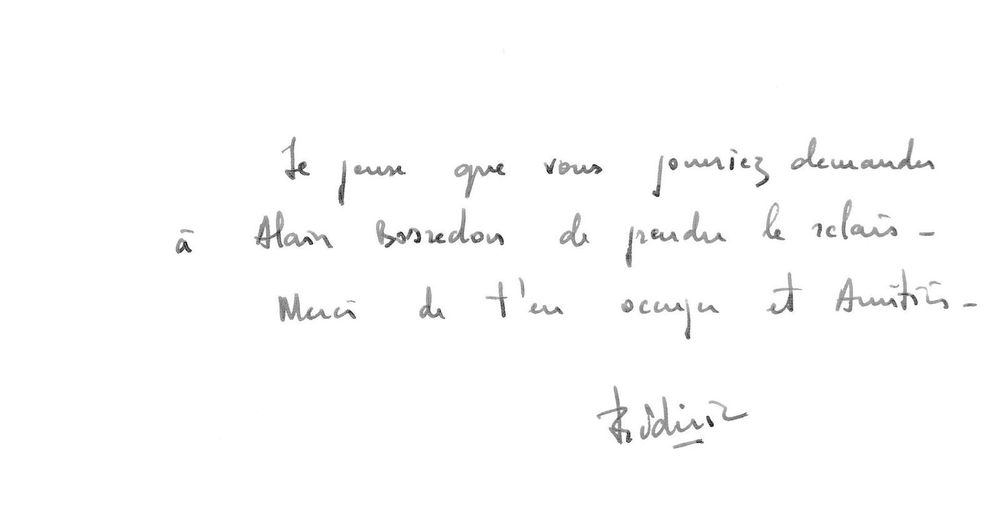 Je pense que vous pourriez demander
à Alain Bossedon de prendre le relais -
Merci de t'en occuper et Amitiés -